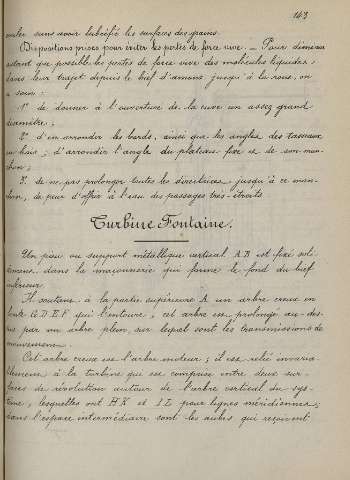 143
sans avoir lubréfié les surfaces des grains.
Dispositions prises pour éviter les pertes de force vive. — Pour diminuer
autant que possible les pertes de force vive des molécules liquides,
dans leur trajet depuis le bief d'amont jusqu'à la roue, on
a soin:
1° de donner à l'ouverture de la cuve un assez grand
diamètre;
2° d'en arrondir les bords, ainsi que les angles des tasseaux
en bois; d'arrondir l'angle du plateau fixe et de son man-
chon;
3° de ne pas prolonger toutes les directrices jusqu'à ce man-
chon, de peur d'offrir à l'eau des passages très étroits
Turbine Fontaine.
Un pieu ou support métallique vertical A B est fixé soli-
dement dans la maçonnerie qui forme le fond du bief
inférieur.
Il soutient à la partie supérieure A un arbre creux en
fonte C D E F qui l'entoure, cet arbre est prolongé au-des-
sus par un arbre plein sur lequel sont les transmissions de
mouvement.
Cet arbre creux est l'arbre moteur; il est relié invaria-
blement à la turbine qui est comprise entre deux sur-
faces de révolution autour de l'arbre vertical du sys-
tème, lesquelles ont H K et I L pour lignes méridiennes;
dans l'espace intermédiaire sont les aubes qui reçoivent